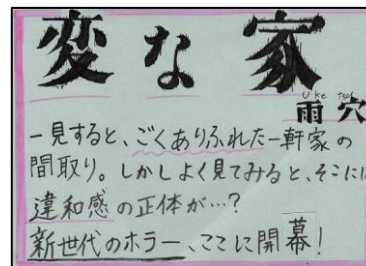 変な家
雨穴
一見すると、ごくありふれた一軒家の
間取り。しかしよく見てみると、そこには
違和感の正体が…?
新世代のホラー、ここに開幕!